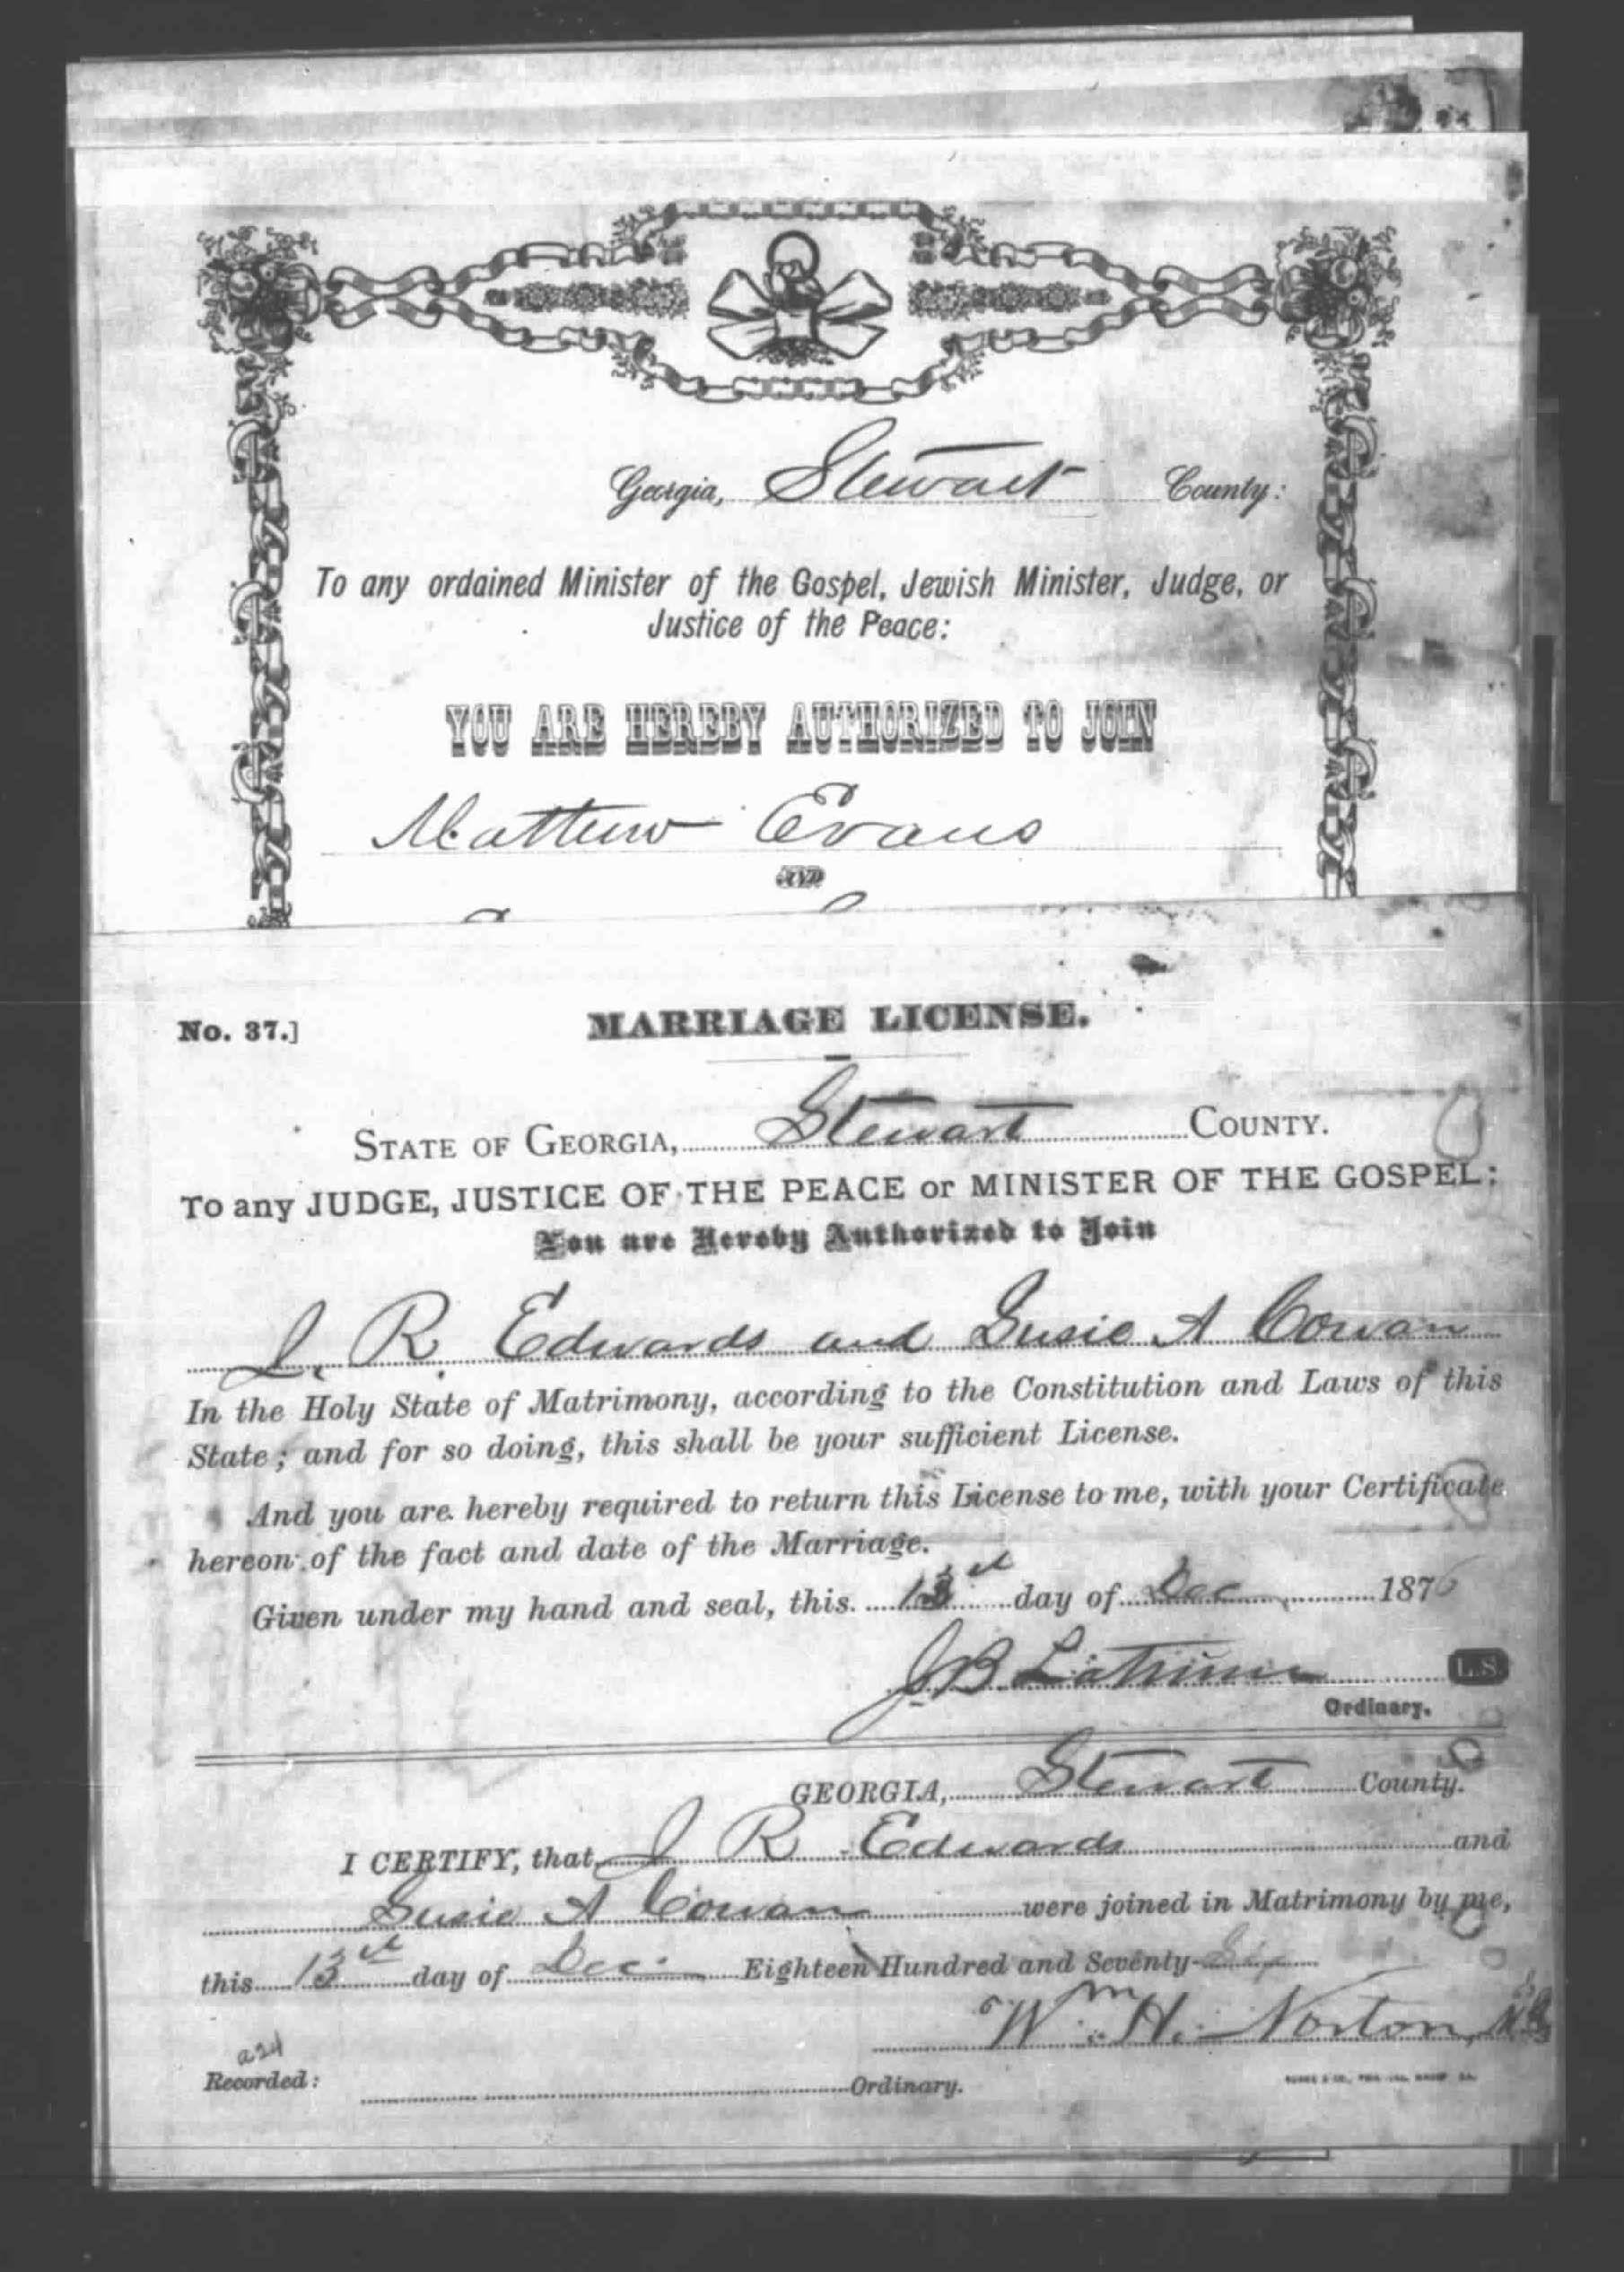 Georgia, Stewart County:
To any ordained Minister of the Gospel, Jewish Minister, Judge, or
Justice of the Peace:
YOU ARE HEREBY AUTHORIZED TO JOIN
Matthew Evans
AND
No. 37.]
MARRIAGE LICENSE.
STATE OF GEORGIA, Stewart COUNTY.
To any JUDGE, JUSTICE OF THE PEACE or MINISTER OF THE GOSPEL:
You are Hereby Authorized to Join
J. R. Edwards and Susie A Cowan
In the Holy State of Matrimony, according to the Constitution and Laws of this
State; and for so doing, this shall be your sufficient License.
And you are hereby required to return this License to me, with your Certificate
hereon of the fact and date of the Marriage.
Given under my hand and seal, this 13th day of Dec 1876
J B Latimer L.S.
Ordinary.
GEORGIA, Stewart County.
I CERTIFY, that J R Edwards and
Susie A Cowan were joined in Matrimony by me,
this 13th day of Dec. Eighteen Hundred and Seventy-Six
Wm. H. Norton,
a24
Recorded: Ordinary.